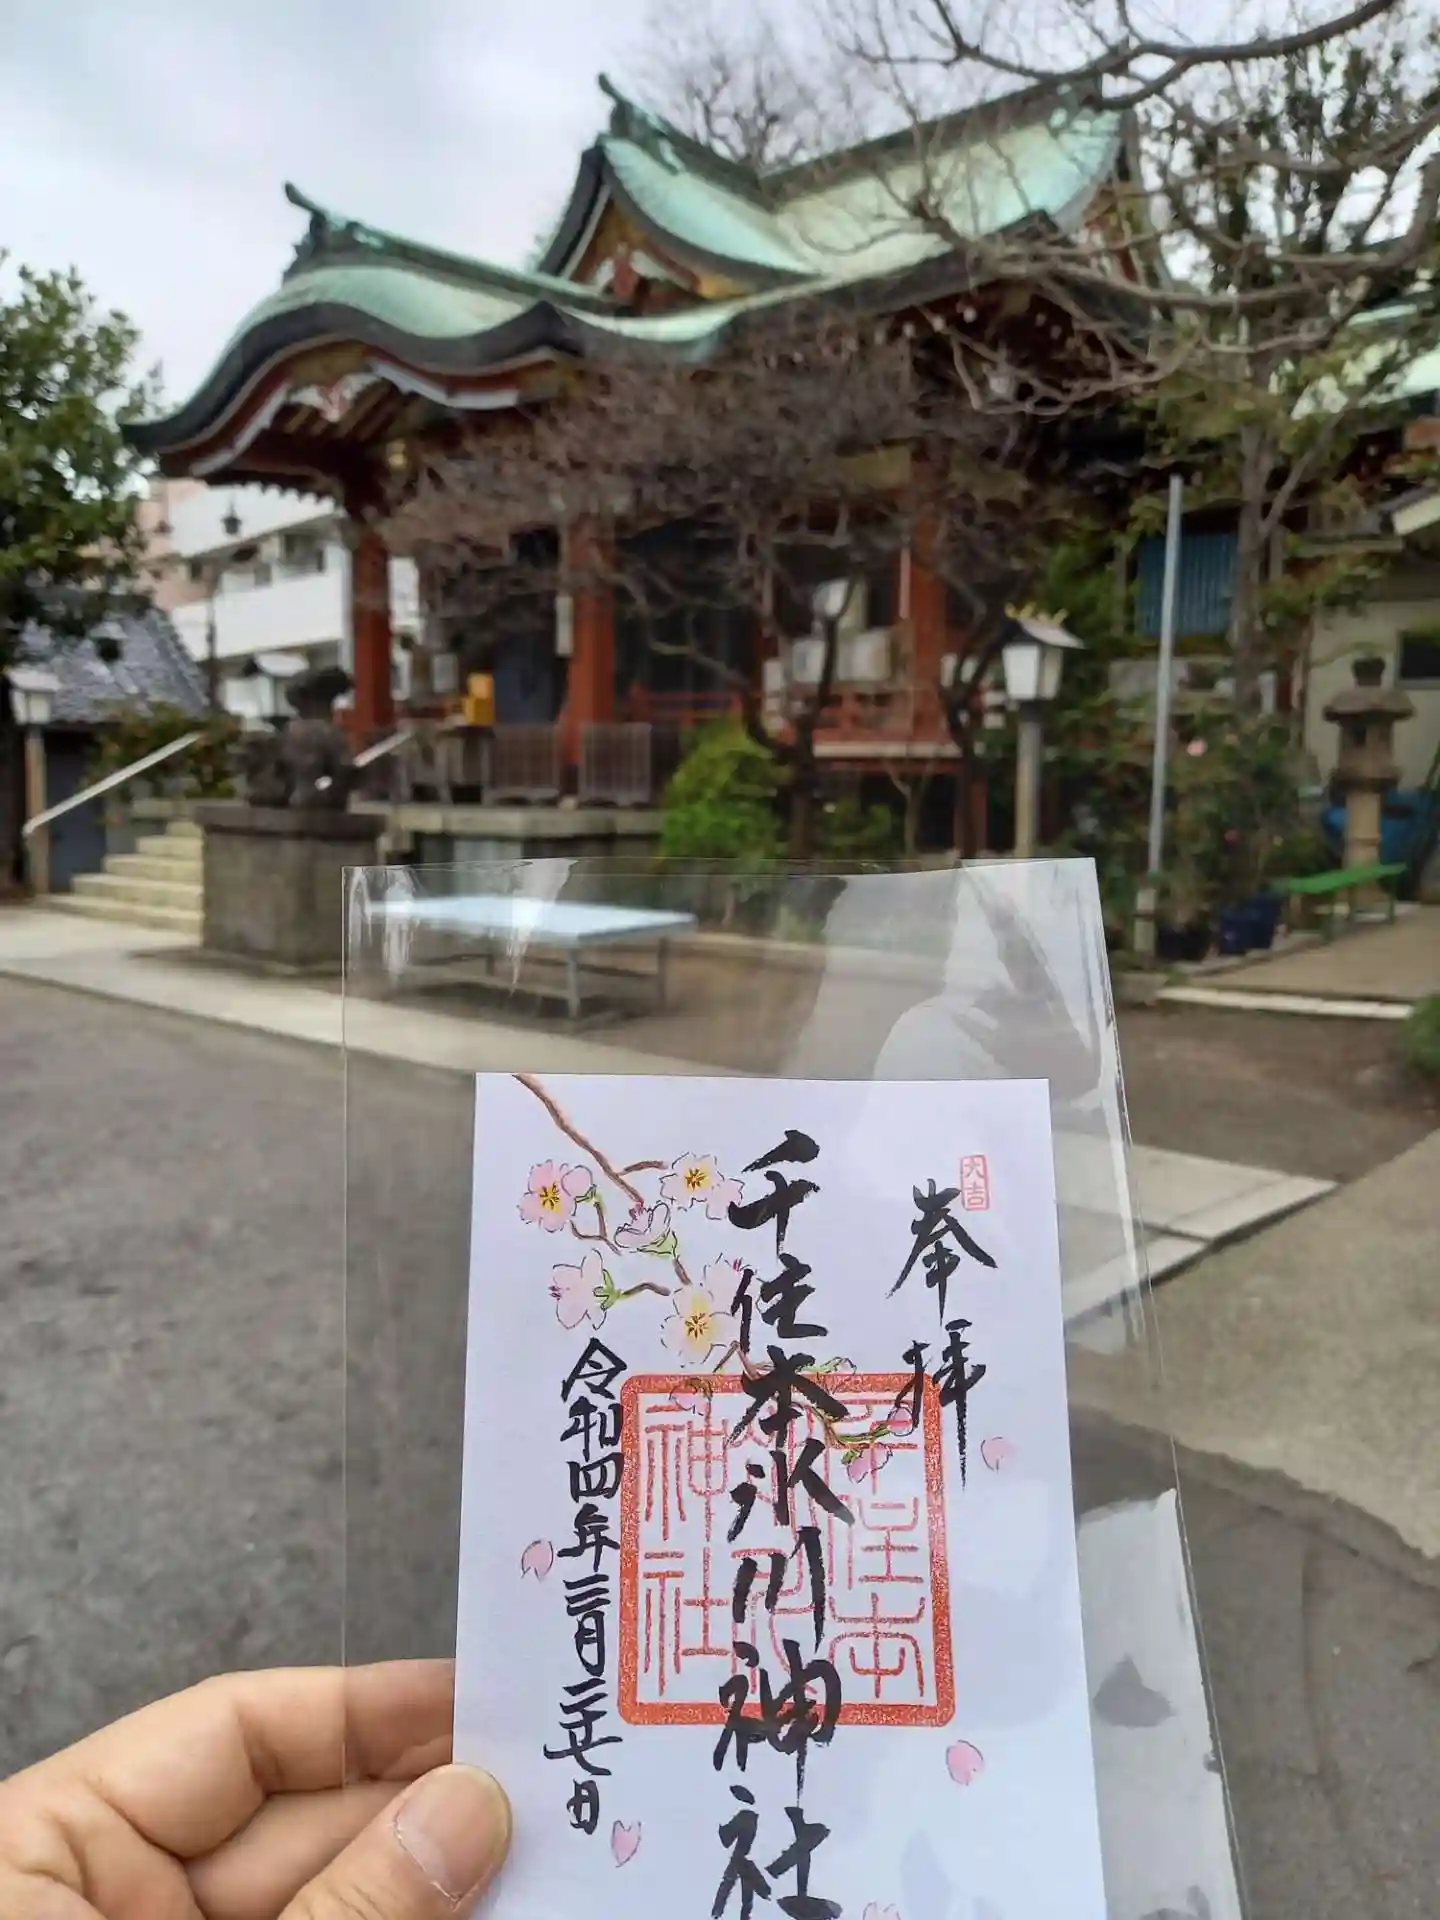 大吉
奉拝
千住本氷川神社
千住本
氷川
神社
令和四年三月二十七日